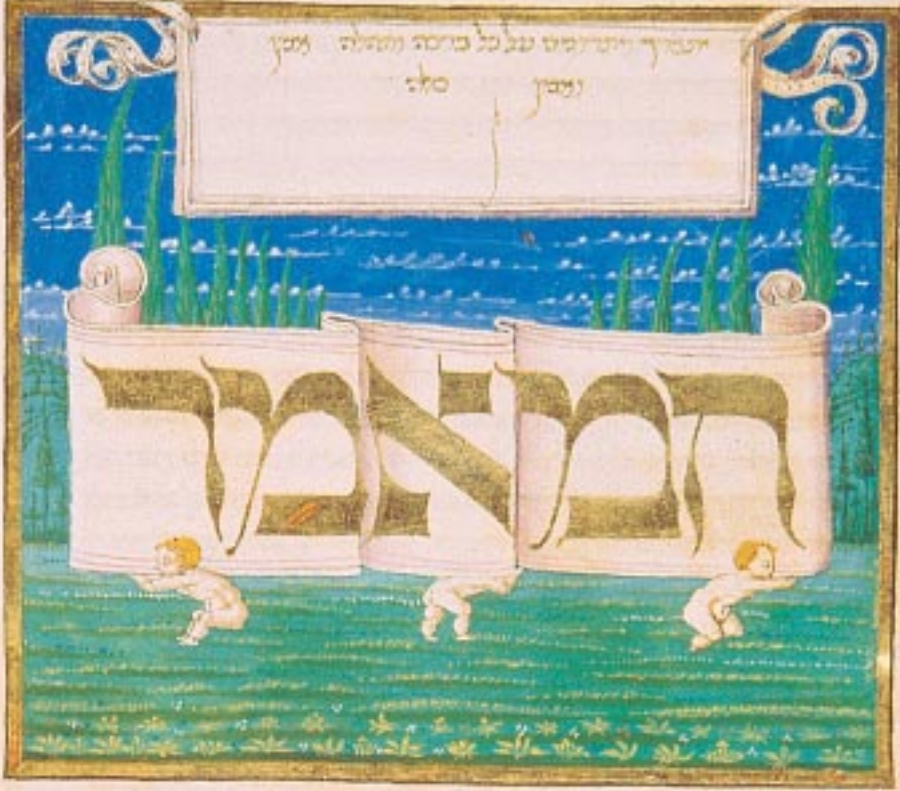 יתברך ויתרומם על כל ברכה ותהלה אמן
ואמן סלה
המאמר